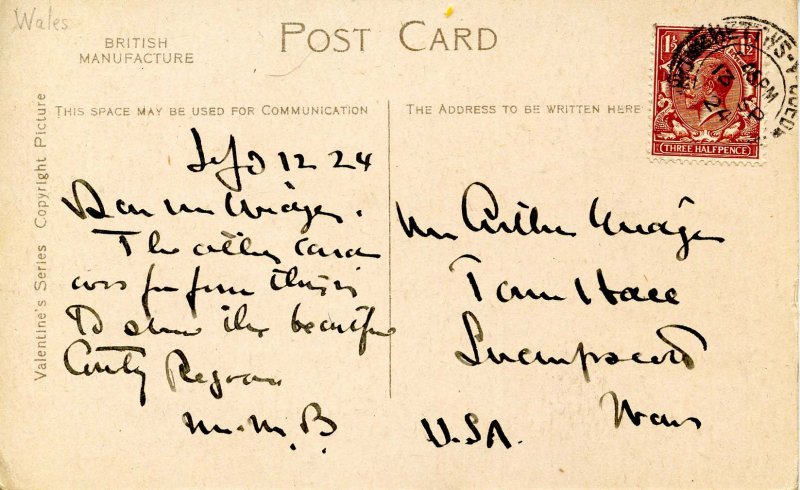 Wales
BRITISH
MANUFACTURE
POST CARD
THIS SPACE MAY BE USED FOR COMMUNICATION
THE ADDRESS TO BE WRITTEN HERE
Valentine's Series Copyright Picture
1½ 1½
THREE HALFPENCE
BETTWS-Y-COED
PM
SP
24
12 24
Dear Mr
The other card
was for fun this is
To show the beautiful
Country Regards
M.M.B.
Mr Arthur
Town Hall
Swampscott
Mass
U.S.A.